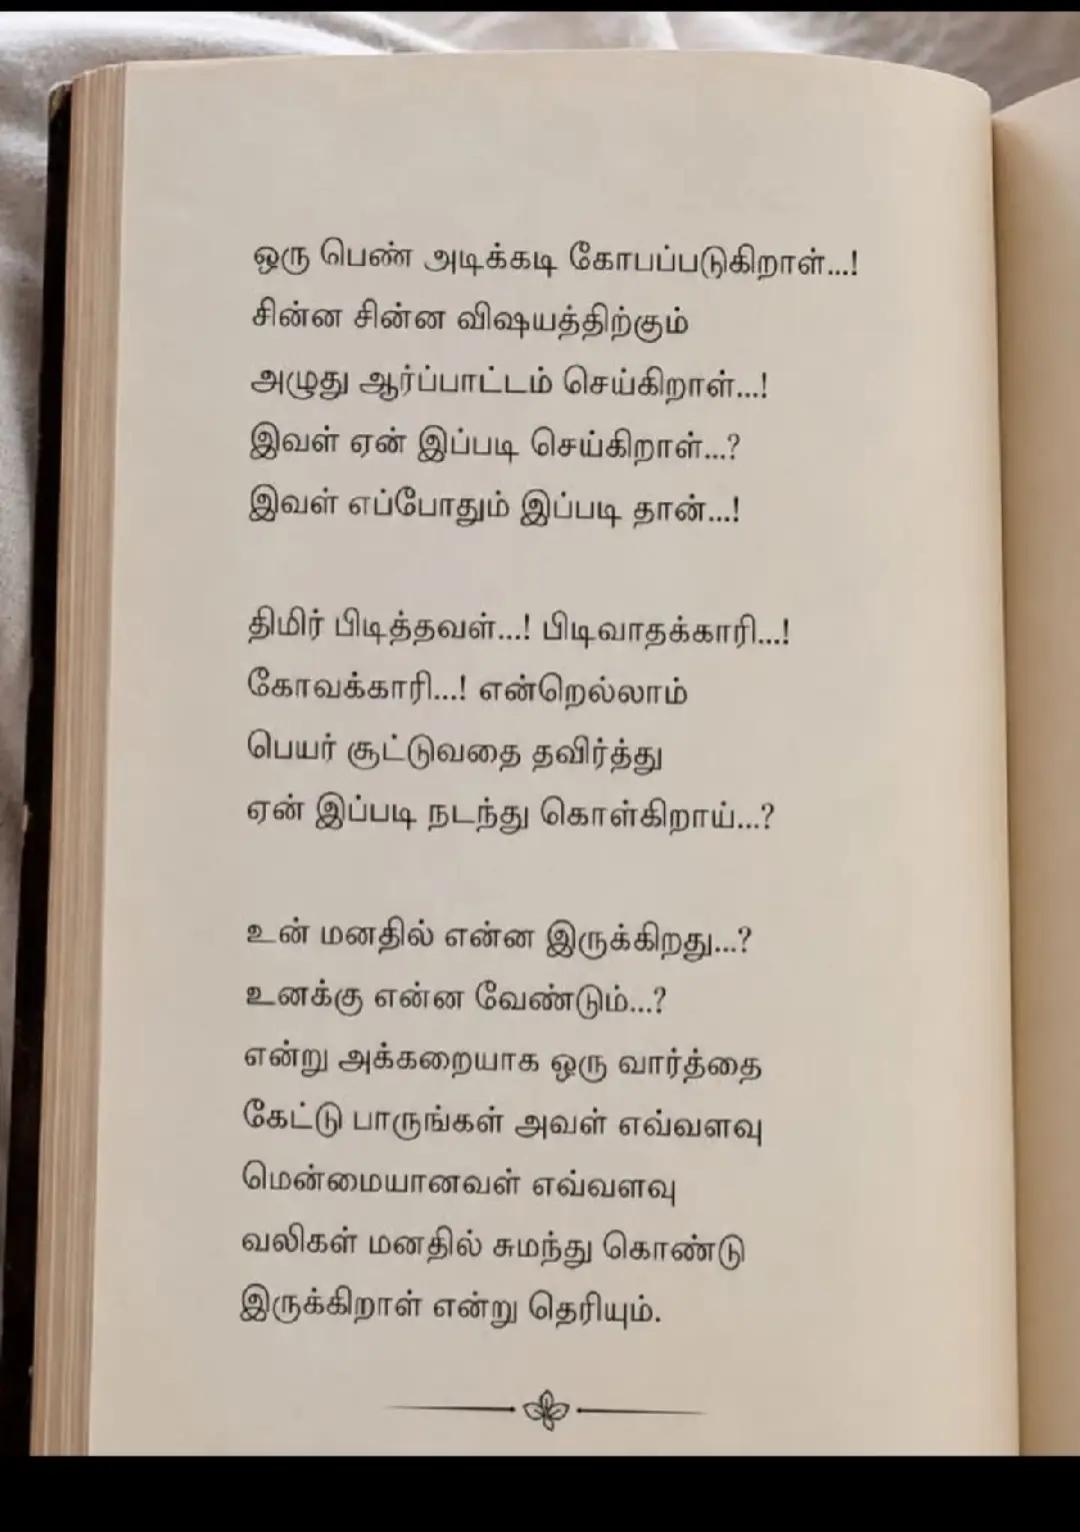 ஒரு பெண் அடிக்கடி கோபப்படுகிறாள்...!
சின்ன சின்ன விஷயத்திற்கும்
அழுது ஆர்ப்பாட்டம் செய்கிறாள்...!
இவள் ஏன் இப்படி செய்கிறாள்...?
இவள் எப்போதும் இப்படி தான்...!
திமிர் பிடித்தவள்...! பிடிவாதக்காரி...!
கோவக்காரி...! என்றெல்லாம்
பெயர் சூட்டுவதை தவிர்த்து
ஏன் இப்படி நடந்து கொள்கிறாய்...?
உன் மனதில் என்ன இருக்கிறது...?
உனக்கு என்ன வேண்டும்...?
என்று அக்கறையாக ஒரு வார்த்தை
கேட்டு பாருங்கள் அவள் எவ்வளவு
மென்மையானவள் எவ்வளவு
வலிகள் மனதில் சுமந்து கொண்டு
இருக்கிறாள் என்று தெரியும்.